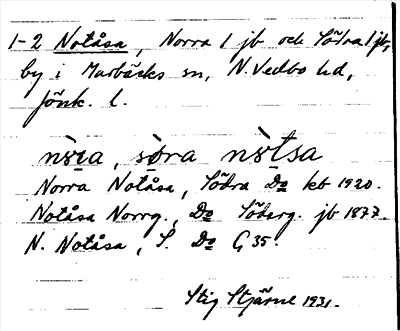 1-2 Notåsa, Norra 1 jb och Södra 1 jb,
by i Marbäcks sn, N. Vedbo hd,
Jönk. l.
nò̤ra, sò̤ra nò̤tsa
Norra Notåsa, Södra Do kb 1920.
Notåsa Norrg., Do Söderg. jb 1877.
N. Notåsa, S. Do G 35.
Stig Stjärne 1931.